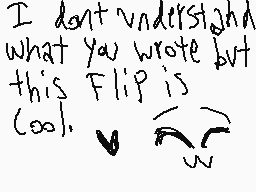 I dont understand
what you wrote but
this Flip is
Cool.